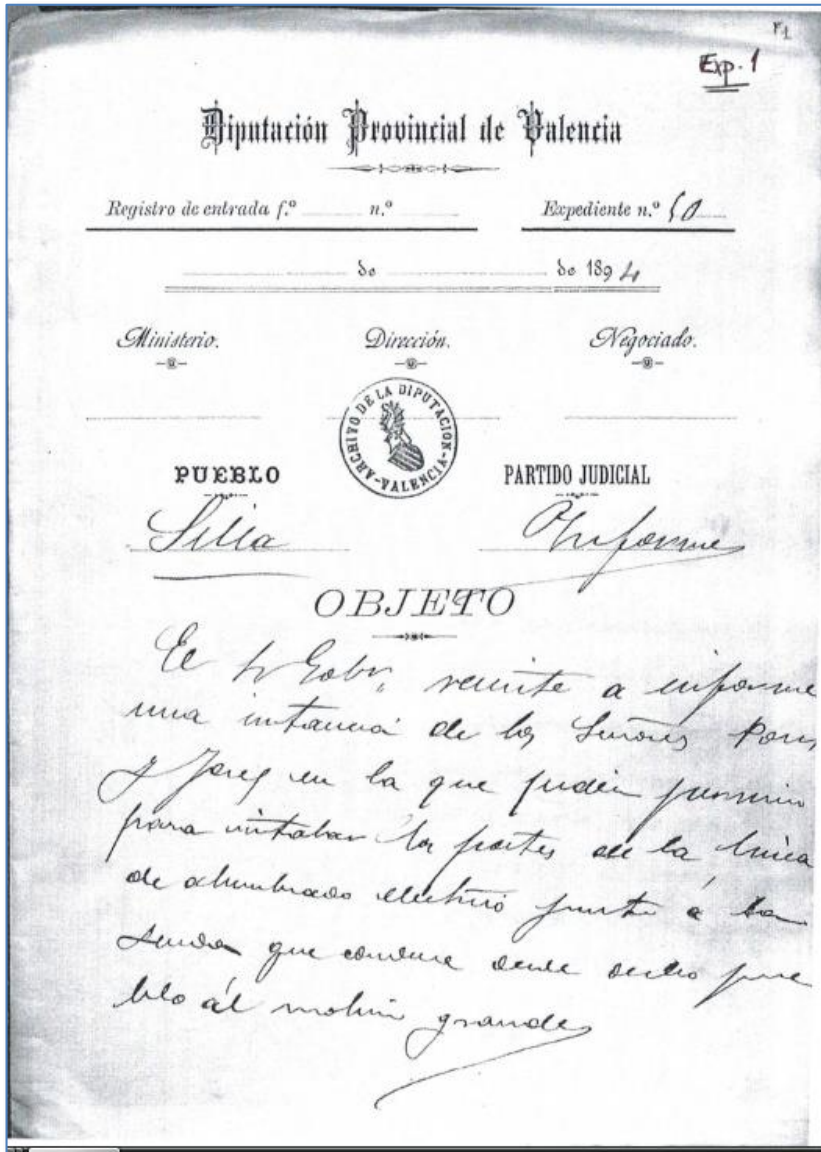 F1
Exp. 1
Diputación Provincial de Valencia
Registro de entrada f.º n.º Expediente n.º 50
de de 1894
Ministerio. Dirección. Negociado.
ARCHIVO DE LA DIPUTACION
-VALENCIA-
PUEBLO PARTIDO JUDICIAL
Silla Informe
OBJETO
El Sr Gobr. remite a informe
una intancia de los Señores
y en la que piden
para los postes de la linea
de alumbrado electrico junto á la
senda que conduce desde dicho pue
blo al molino grande